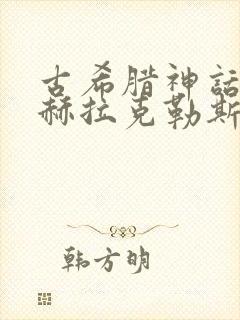 古希腊神话
赫拉克勒斯
韩方明